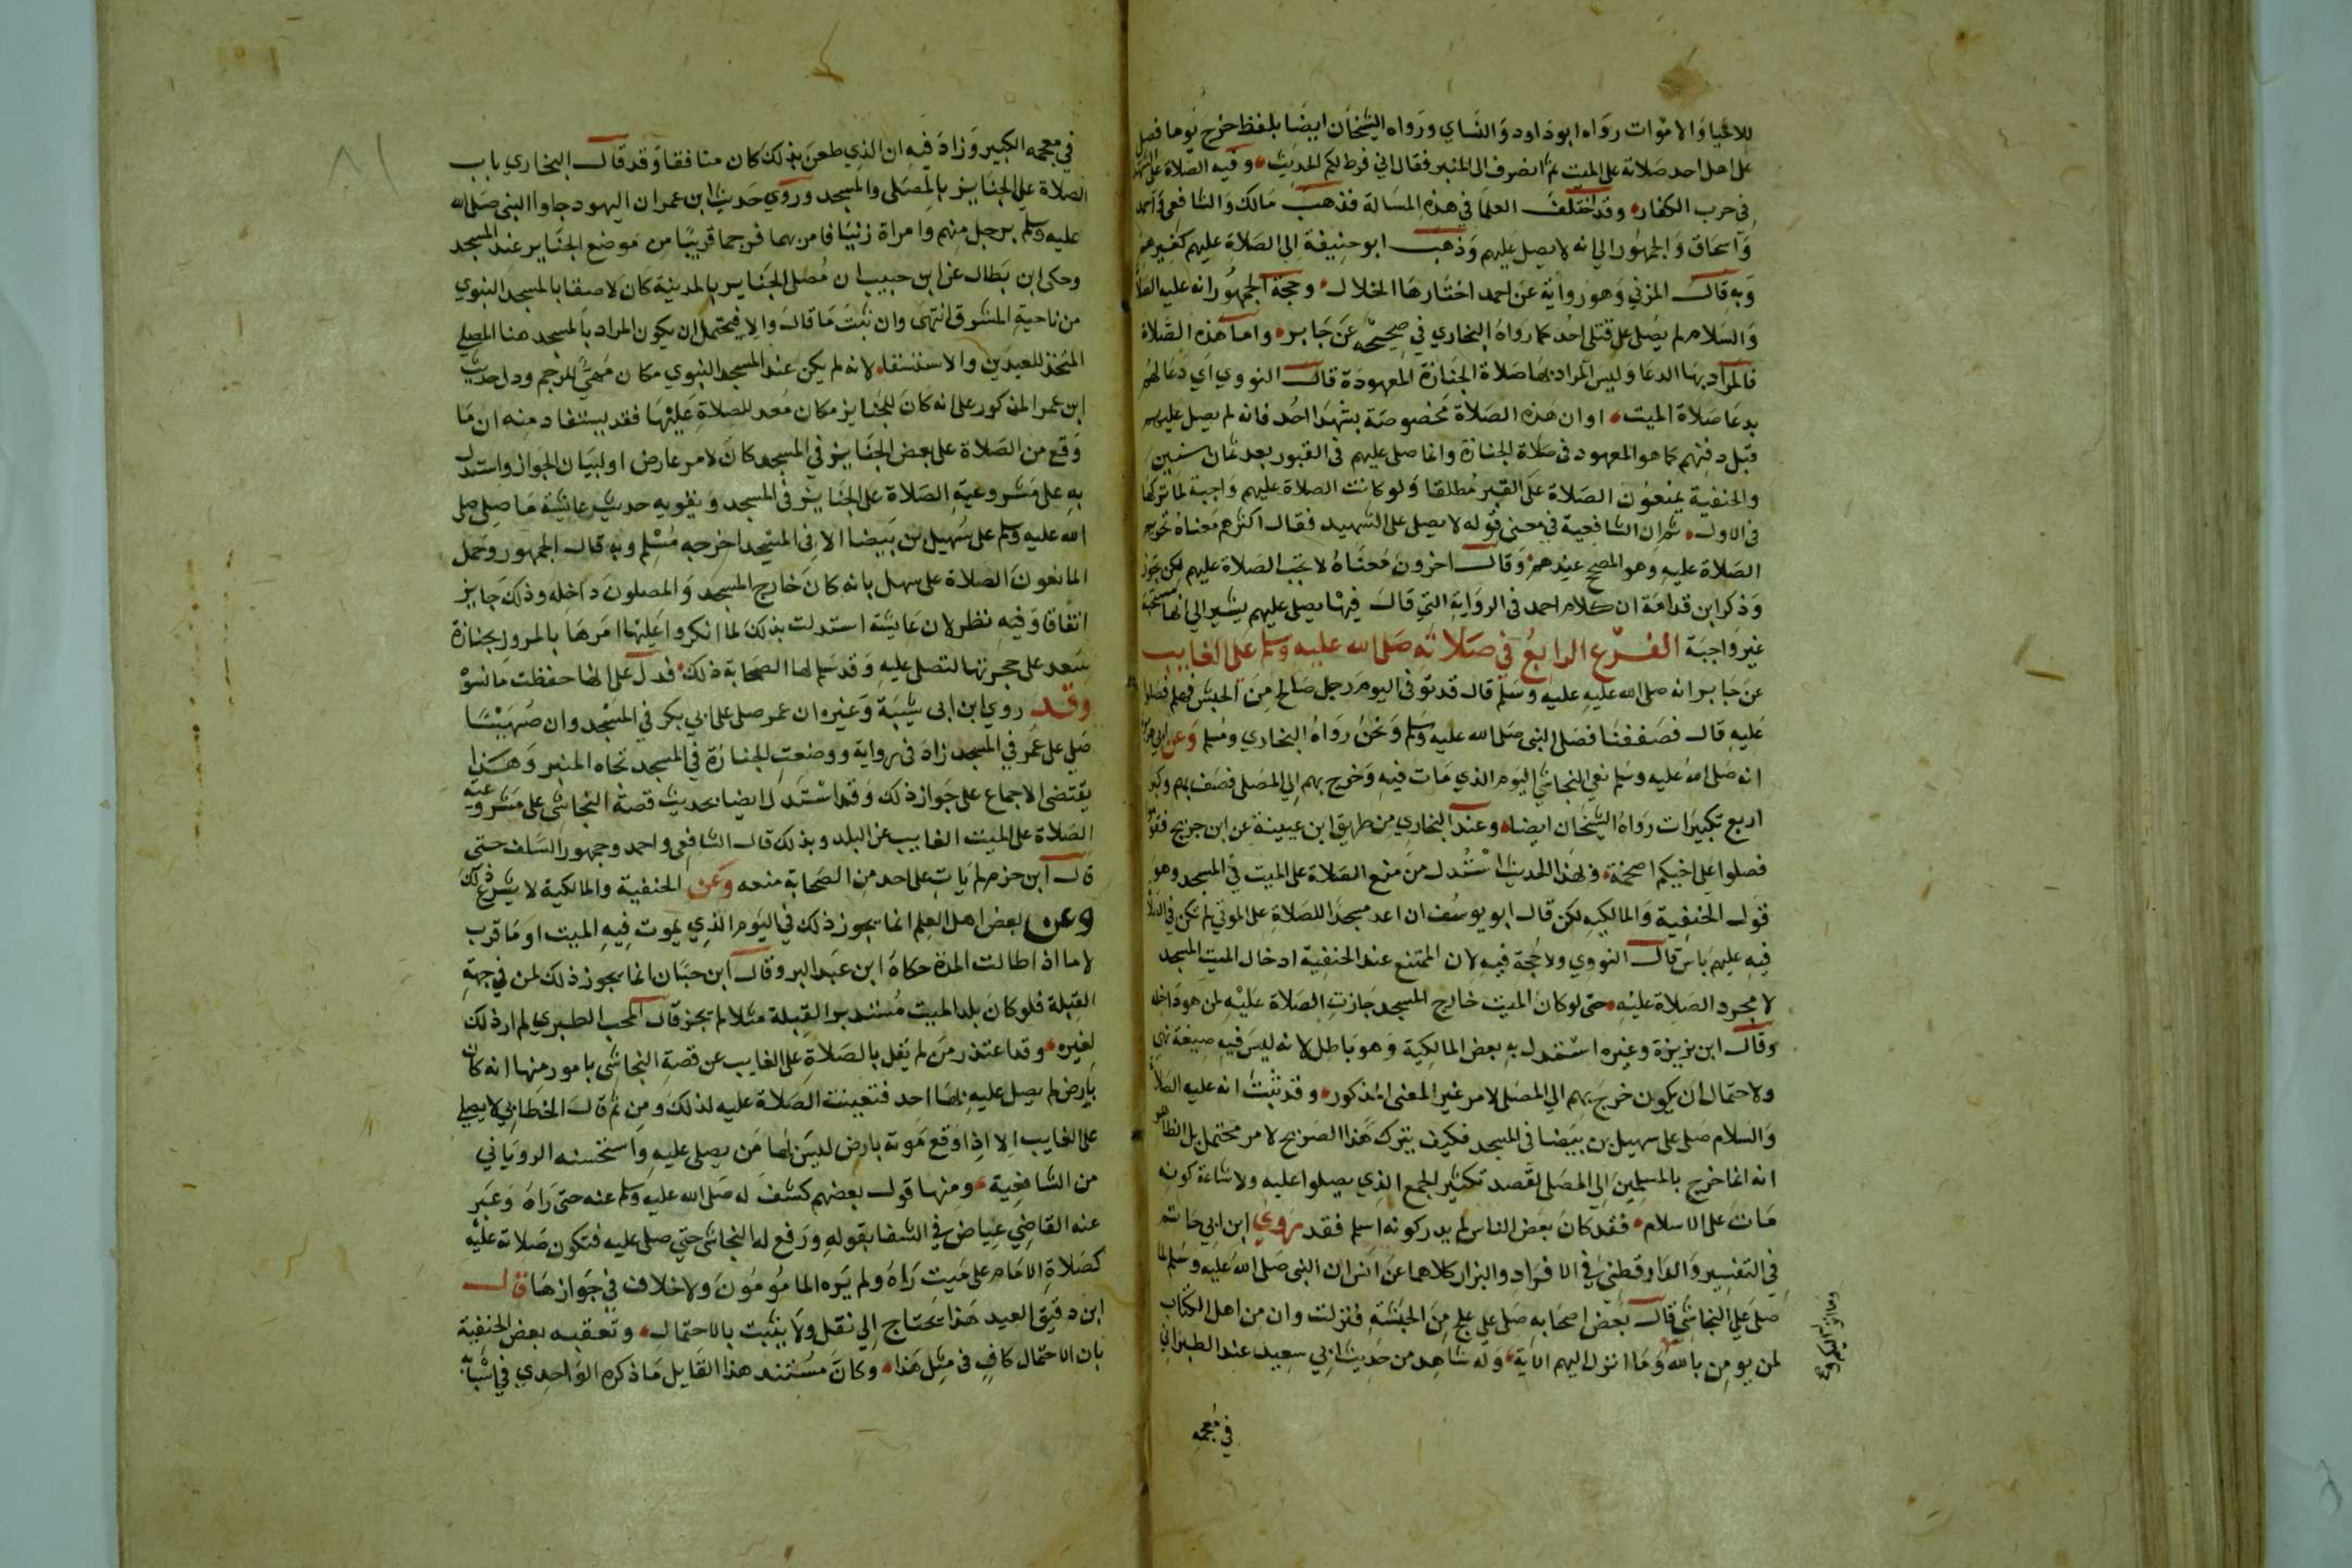 للاحيا والاموات رواه ابو داود والنساي ورواه الشيخان ايضا بلفظ خرج يوما فصلى
على اهل احد صلاته على الميت ثم انصرف الى المنبر فقال اني فرط لكم الحديث وفيه الصلاة على الشهدا
في حرب الكفار وقد اختلف العلما في هذه المسالة فذهب مالك والشافعي واحمد
واسحاق والجمهور الي انه لا يصلي عليهم وذهب ابو حنيفة الي الصلاة عليهم كغيرهم
وبه قال المزني وهو رواية عن احمد اختارها الخلال وحجة الجمهور انه عليه الصلاة
والسلام لم يصل على قتلى احد كما رواه البخاري في صحيحه عن جابر واما هذه الصلاة
فالمراد بها الدعا وليس المراد بها صلاة الجنازة المعهودة قال النووي اي دعا لهم
بدعا صلاة الميت او ان هذه الصلاة مخصوصة بشهدا احد فانه لم يصل عليهم
قبل دفنهم كما هو المعهود في صلاة الجنازة وانما صلى عليهم في القبور بعد ثمان سنين
والحنفية يمنعون الصلاة على القبر مطلقا ولو كانت الصلاة عليهم واجبة لما تركها
في الاول ثم ان الشافعية في معنى قوله لا يصلى على الشهيد فقال اكثرهم معناه تحريم
الصلاة عليه وهو المصحح عندهم وقال اخرون معناه لا تجب الصلاة عليهم لكن تجوز
وذكر ابن قدامة ان كلام احمد في الرواية التي قال فيها يصلى عليهم يشير الي انها مستحبة
غير واجبة الفرع الرابع في صلاته صلى الله عليه وسلم على الغايب
عن جابر انه صلى الله عليه وسلم قال قد توفى اليوم رجل صالح من الحبش فهلم فصلوا
عليه قال فصففنا فصلى النبي صلى الله عليه وسلم ونحن رواه البخاري ومسلم وعن ابي هريرة
انه صلى الله عليه وسلم نعي النجاشي اليوم الذي مات فيه وخرج بهم الي المصلى فصف بهم وكبر
اربع تكبيرات رواه الشيخان ايضا وعند البخاري من طريق ابن عيينة عن ابن جريج فقوموا
فصلوا على اخيكم اصحمة وبهذا الحديث استدل من منع الصلاة على الميت في المسجد وهو
قول الحنفية والمالكيه لكن قال ابو يوسف ان اعد مسجدا للصلاة على الموتي لم تكن في الصلاة
فيه عليهم باس قال النووي ولا حجة فيه لان الممتنع عند الحنفية ادخال الميت المسجد
لا مجرد الصلاة عليه حتى لو كان الميت خارج المسجد جازت الصلاة عليه لمن هو داخله
وقال ابن بزيزة وغيره استدل به بعض المالكية وهو باطل لانه ليس فيه صيغة نهي
ولاحتمال ان يكون خرج بهم الي المصلى لامر غير المعنى المذكور وقد ثبت انه عليه الصلاة
والسلام صلى على سهيل بن بيضا في المسجد فكيف يترك هذا الصريح لامر محتمل بل الظاهر
انه انما خرج بالمسلمين الي المصلى لقصد تكثير الجمع الذي يصلوا عليه ولاشاعة كونه
مات على الاسلام فقد كان بعض الناس لم يدر كونه اسلم فقد روي ابن ابي حاتم
في التفسير والدارقطني في الافراد والبزار كلاهما عن انس ان النبي صلى الله عليه وسلم لما
صلى علي النجاشي قال بعض اصحابه صلى علي علج من الحبشة فنزلت وان من اهل الكتاب
لمن يومن بالله وما انزل اليهم الاية وله شاهد من حديث ابي سعيد عند الطبراني
في معجمه
في معجمه الكبير وزاد فيه ان الذي طعن بذلك كان منافقا وقد قال البخاري باب
الصلاة علي الجنايز بالمصلى والمسجد وروي حديث ابن عمر ان اليهود جاوا النبي صلى الله
عليه وسلم برجل منهم وامراة زنيا فامر بهما فرجما قريبا من موضع الجنايز عند المسجد
وحكى ابن بطال عن ابن حبيب ان مصلى الجنايز بالمدينة كان لاصقا بالمسجد النبوي
من ناحية المشرق انتهى وان ثبت ما قال والا فيحتمل ان يكون المراد بالمسجد هنا المصلي
المتخذ للعيدين والاستسقا لانه لم يكن عند المسجد النبوي مكان مهيى للرجم ودل حديث
ابن عمر المذكور على انه كان للجنايز مكان معد للصلاة عليها فقد يستفاد منه ان ما
وقع من الصلاة على بعض الجنايز في المسجد كان لامر عارض او لبيان الجواز واستدل
به على مشروعية الصلاة على الجنايز في المسجد ويقويه حديث عايشة ما صلى صلى
الله عليه وسلم على سهيل بن بيضا الا في المسجد اخرجه مسلم وبه قال الجمهور وحمل
المانعون الصلاة على سهل بانه كان خارج المسجد والمصلون داخله وذلك جايز
اتفاقا وفيه نظر لان عايشة استدلت بذلك لما انكروا عليها امرها بالمرور بجنازة
سعد على حجرتها لتصلى عليه وقد سلم لها الصحابة ذلك فدل على انها حفظت ما نسوه
وقد روي ابن ابى شيبة وغيره ان عمر صلى على ابي بكر في المسجد وان صهيبا
صلى على عمر في المسجد زاد في رواية ووضعت الجنازة في المسجد تجاه المنبر وهذا
يقتضى الاجماع على جواز ذلك وقد استدل ايضا بحديث قصة النجاشي على مشروعية
الصلاة على الميت الغايب عن البلد وبذلك قال الشافعى واحمد وجمهور السلف حتى
قال ابن حزم لم يات على احد من الصحابة منعه وعن الحنفية والمالكية لا يشرع ذلك
وعن بعض اهل العلم انما يجوز ذلك في اليوم الذي يموت فيه الميت او ما قرب
لا ما اذا طالت المدة حكاه ابن عبد البر وقال ابن حبان انما يجوز ذلك لمن في جهة
القبلة فلو كان بلد الميت مستدبر القبلة مثلا لم يجز قال المحب الطبري لم ار ذلك
لغيره وقد اعتذر من لم يقل بالصلاة على الغايب عن قصة النجاشي بامور منها انه كان
بارض لم يصل عليه بها احد فتعينت الصلاة عليه لذلك ومن ثم قال الخطابي لا يصلى
على الغايب الا اذا وقع موته بارض ليس بها من يصلى عليه واستحسنه الروياني
من الشافعية ومنها قول بعضهم كشف له صلى الله عليه وسلم عنه حتى راه وعبر
عنه القاضي عياض في الشفا بقوله ورفع له النجاشي حتي صلى عليه فتكون صلاته عليه
كصلاة الامام على ميت راه ولم يره المامومون ولا خلاف في جوازها قال
ابن دقيق العيد هذا يحتاج الي نقل ولا يثبت بالاحتمال وتعقبه بعض الحنفية
بان الاحتمال كاف في مثل هذا وكان مستند هذا القايل ما ذكره الواحدي في اسبابه